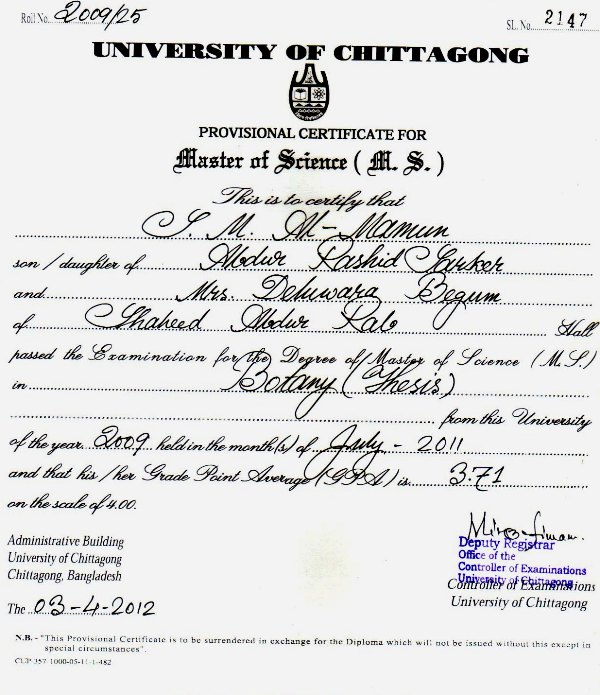 Roll No. 2009/25
SL. No. 2147
UNIVERSITY OF CHITTAGONG
PROVISIONAL CERTIFICATE FOR
Master of Science ( M. S. )
This is to certify that
S. M. Al-Mamun
son / daughter of Abdur Rashid Sarker
and Mrs. Deluwara Begum
of Shaheed Abdur Rab Hall
passed the Examination for the Degree of Master of Science (M.S.)
in Botany (Thesis)
from this University
of the year 2009 held in the month(s) of July - 2011
and that his / her Grade Point Average (GPA) is 3.71
on the scale of 4.00.
Administrative Building
University of Chittagong
Chittagong, Bangladesh
The 03-4-2012
Deputy Registrar
Office of the
Controller of Examinations
University of Chittagong
Controller of Examinations
University of Chittagong
N.B. - "This Provisional Certificate is to be surrendered in exchange for the Diploma which will not be issued without this except in
special circumstances".